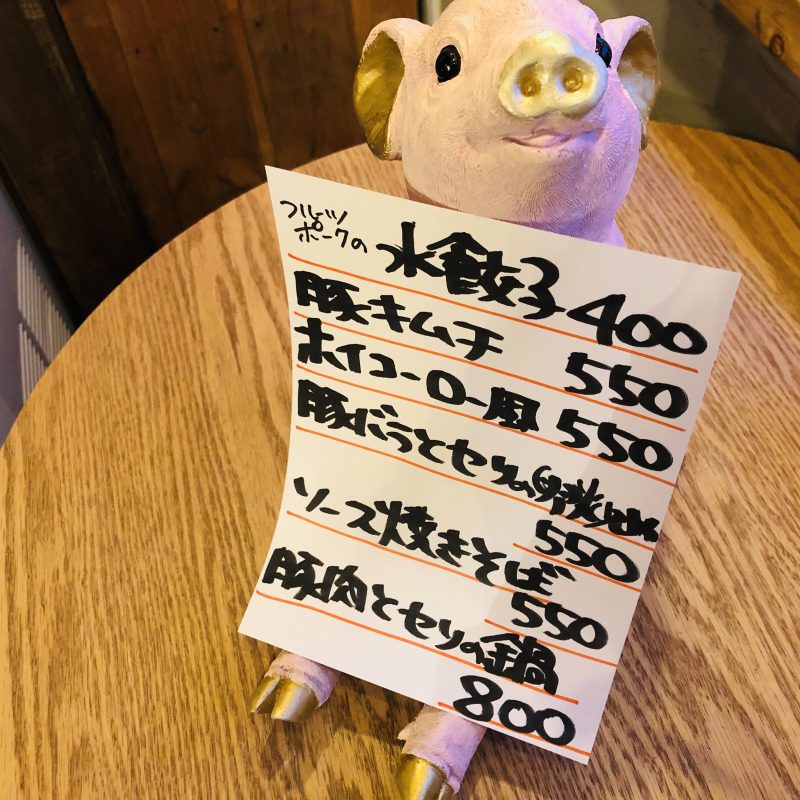 フルーツ
ポークの 水餃子 400
豚キムチ 550
ホイコーロー風 550
豚バラとセリの卵炒め
550
ソース焼きそば
550
豚肉とセリの鍋
800